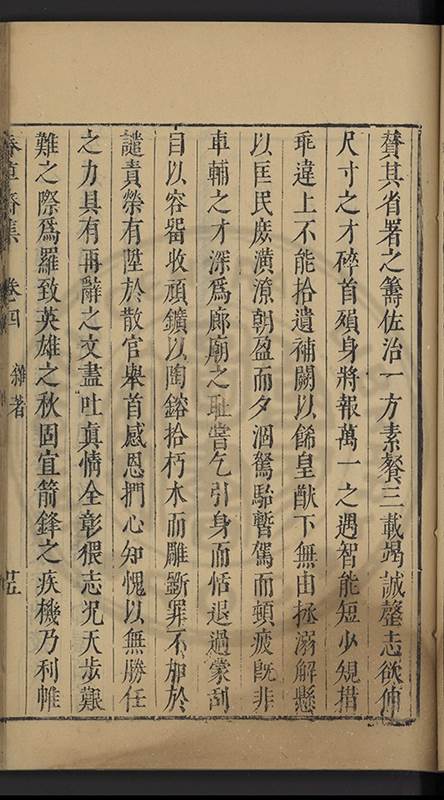 贊其省署之籌佐治一方素餐三載竭誠罄志欲伸
尺寸之才碎首殞身將報萬一之遇智能短少規措
乖違上不能拾遺補闕以餙皇猷下無由拯溺解懸
以匡民庶潢潦朝盈而夕涸駑駘暫駕而頓疲旣非
車輔之才深爲廊廟之耻嘗乞引身而恬退過蒙刮
目以容畱收頑鑛以陶鎔拾朽木而雕斵罪不加於
譴責榮有陞於散官舉首感恩捫心知愧以無勝任
之力具有再辭之文盡吐真情全彰猥志况天步艱
難之際爲羅致英雄之秋固宜箭鋒之疾機乃利帷
齋集 卷四 雜著 廿五